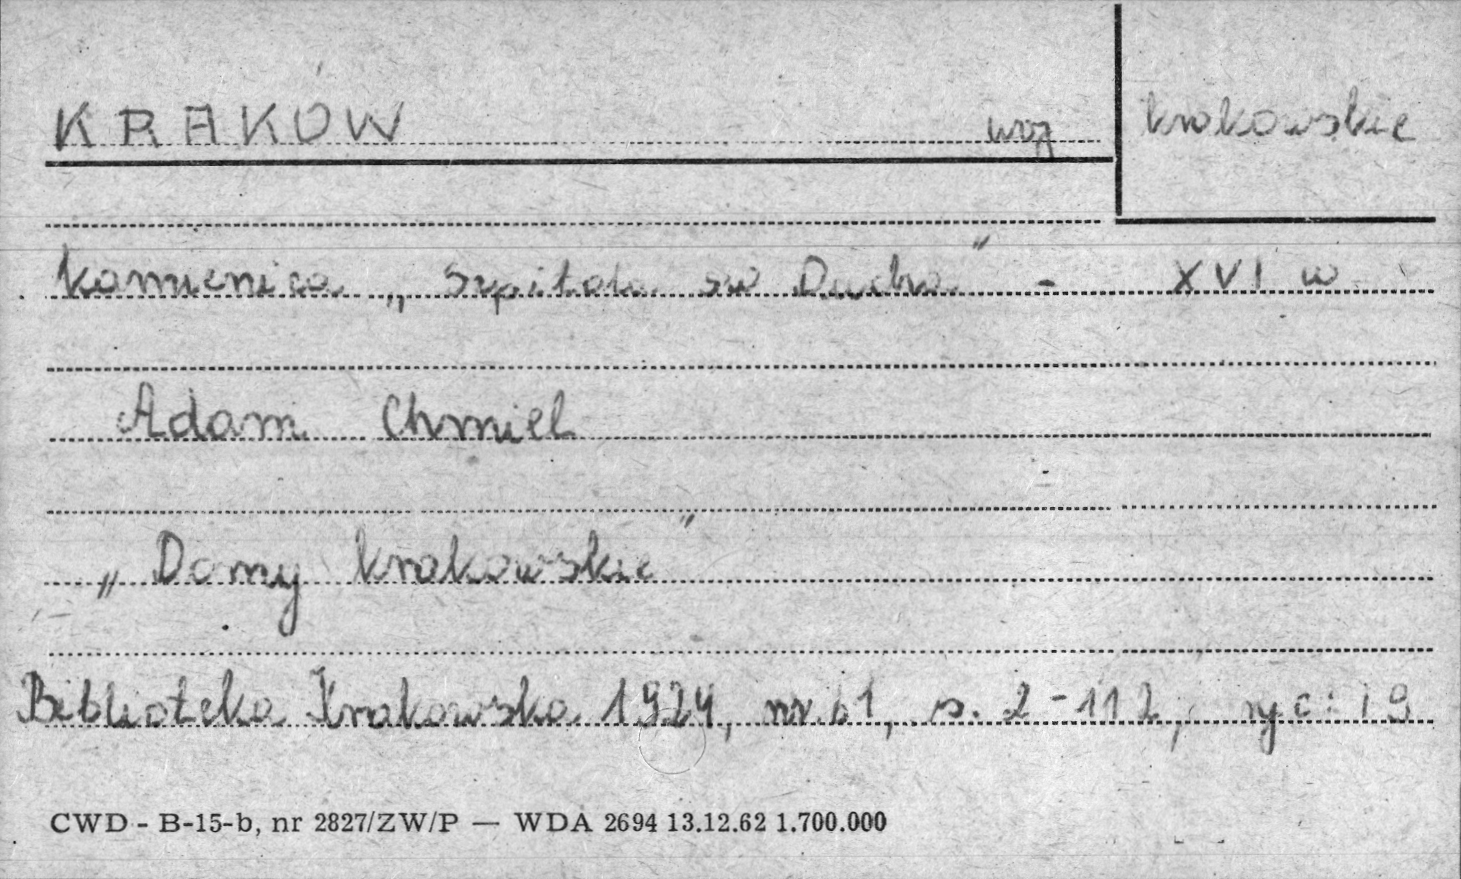 KRAKÓW woj krakowskie
kamienica „Szpitala św Ducha" - XVI w
Adam Chmiel
„Domy krakowskie"
Biblioteka Krakowska 1924, nr. 61, s. 2-112, ryc: 19
CWD - B-15-b, nr 2827/ZW/P — WDA 2694 13.12.62 1.700.000